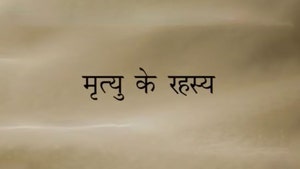 मृत्यु के रहस्य